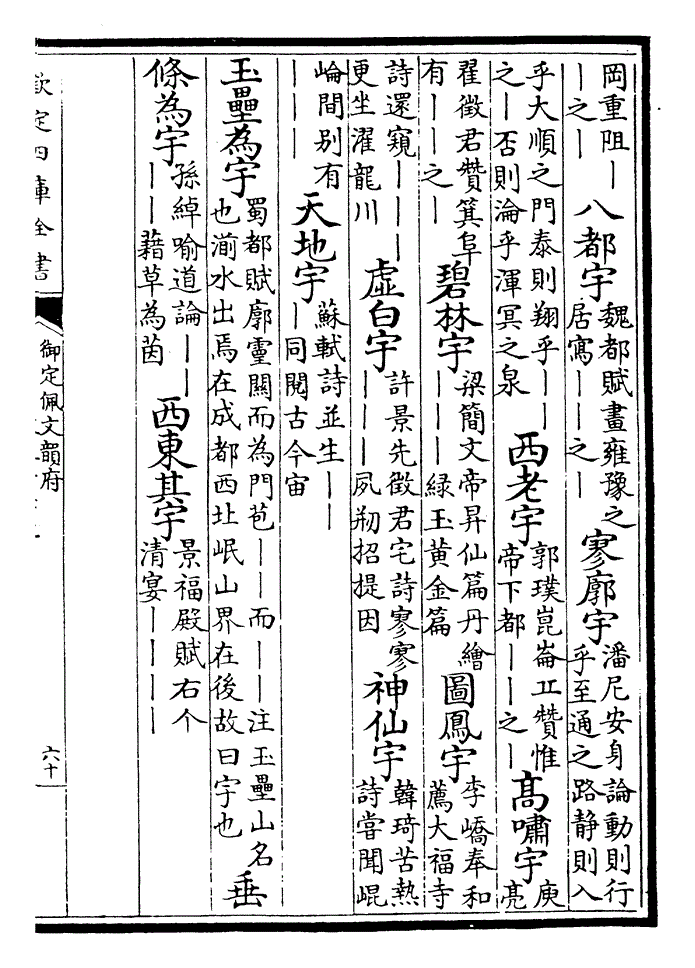 岡重阻｜
｜之｜
八都宇
魏都賦畫雍豫之
居寓｜｜之｜
寥廓宇
潘尼安身論動則行
乎至通之路静則入
乎大順之門泰則翔乎｜｜
之｜否則淪乎渾冥之泉
西老宇
郭璞崑崙丘贊惟
帝下都｜｜之｜
高嘯宇
庾亮
翟徵君贊箕阜
有｜｜之｜
碧林宇
梁簡文帝昇仙篇丹繪
｜｜｜緑玉黄金篇
圖鳳宇
李嶠奉和
薦大福寺
詩還窺｜｜｜
更坐濯龍川
虛白宇
許景先徵君宅詩寥寥
｜｜｜夙剏招提因
神仙宇
韓琦苦熱
詩嘗聞崐
崘間别有
｜｜｜
天地宇
蘇軾詩並生｜｜
｜同閱古今宙
玉壘為宇
蜀都賦廓靈關而為門苞｜｜而｜｜注玉壘山名
也湔水出焉在成都西北岷山界在後故曰宇也
垂
條為宇
孫綽喻道論｜｜
｜｜藉草為茵
西東其宇
景福殿賦右个
清宴｜｜｜｜
欽定四庫全書
御定佩文韻府
六十